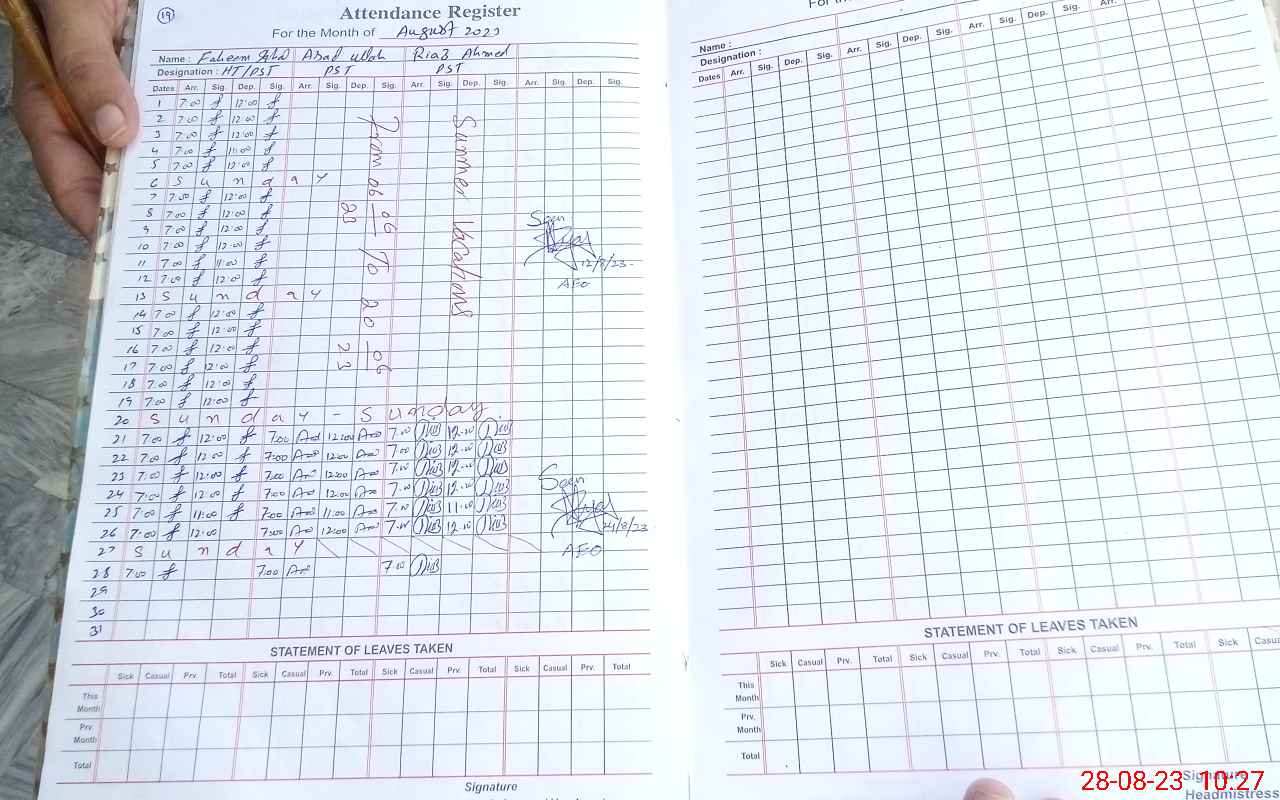 19
Attendance Register
For the Month of August 2023
Name : Faheem Asad ullah Riaz Ahmed
Designation : HT/PST PST PST
Dates Arr. Sig. Dep. Sig. Arr. Sig. Dep. Sig. Arr. Sig. Dep. Sig. Arr. Sig. Dep. Sig.
1 7:00 12:00
2 7:00 12:00
3 7:00 12:00
4 7:00 11:00
5 7:00 12:00
6 S u n d a y
7 7:00 12:00
8 7:00 12:00
9 7:00 12:00
10 7:00 12:00
11 7:00 11:00
12 7:00 12:00
13 S u n d a y
14 7:00 12:00
15 7:00 12:00
16 7:00 12:00
17 7:00 12:00
18 7:00 12:00
19 7:00 12:00
From 06-06-23 To 20-06-23
Summer Vacations
Seen
12/8/23
AEO
20 S u n d a y - S u n d a y
21 7:00 12:00 7:00 12:00 7:00 12:00
22 7:00 12:00 7:00 12:00 7:00 12:00
23 7:00 12:00 7:00 12:00 7:00 12:00
24 7:00 12:00 7:00 12:00 7:00 12:00
25 7:00 11:00 7:00 11:00 7:00 11:00
26 7:00 12:00 7:00 12:00 7:00 12:00
27 S u n d a y
28 7:00 7:00 7:00
29
30
31
Seen
24/8/23
AEO
STATEMENT OF LEAVES TAKEN
Sick Casual Prv. Total Sick Casual Prv. Total Sick Casual Prv. Total Sick Casual Prv. Total
This Month
Prv. Month
Total
Signature
Name :
Designation :
Dates Arr. Sig. Dep. Sig. Arr. Sig. Dep. Sig. Arr. Sig. Dep. Sig. Arr.
STATEMENT OF LEAVES TAKEN
Sick Casual Prv. Total Sick Casual Prv. Total Sick Casual Prv. Total Sick
This Month
Prv. Month
Total
Signature
Headmistress
28-08-23 10:27